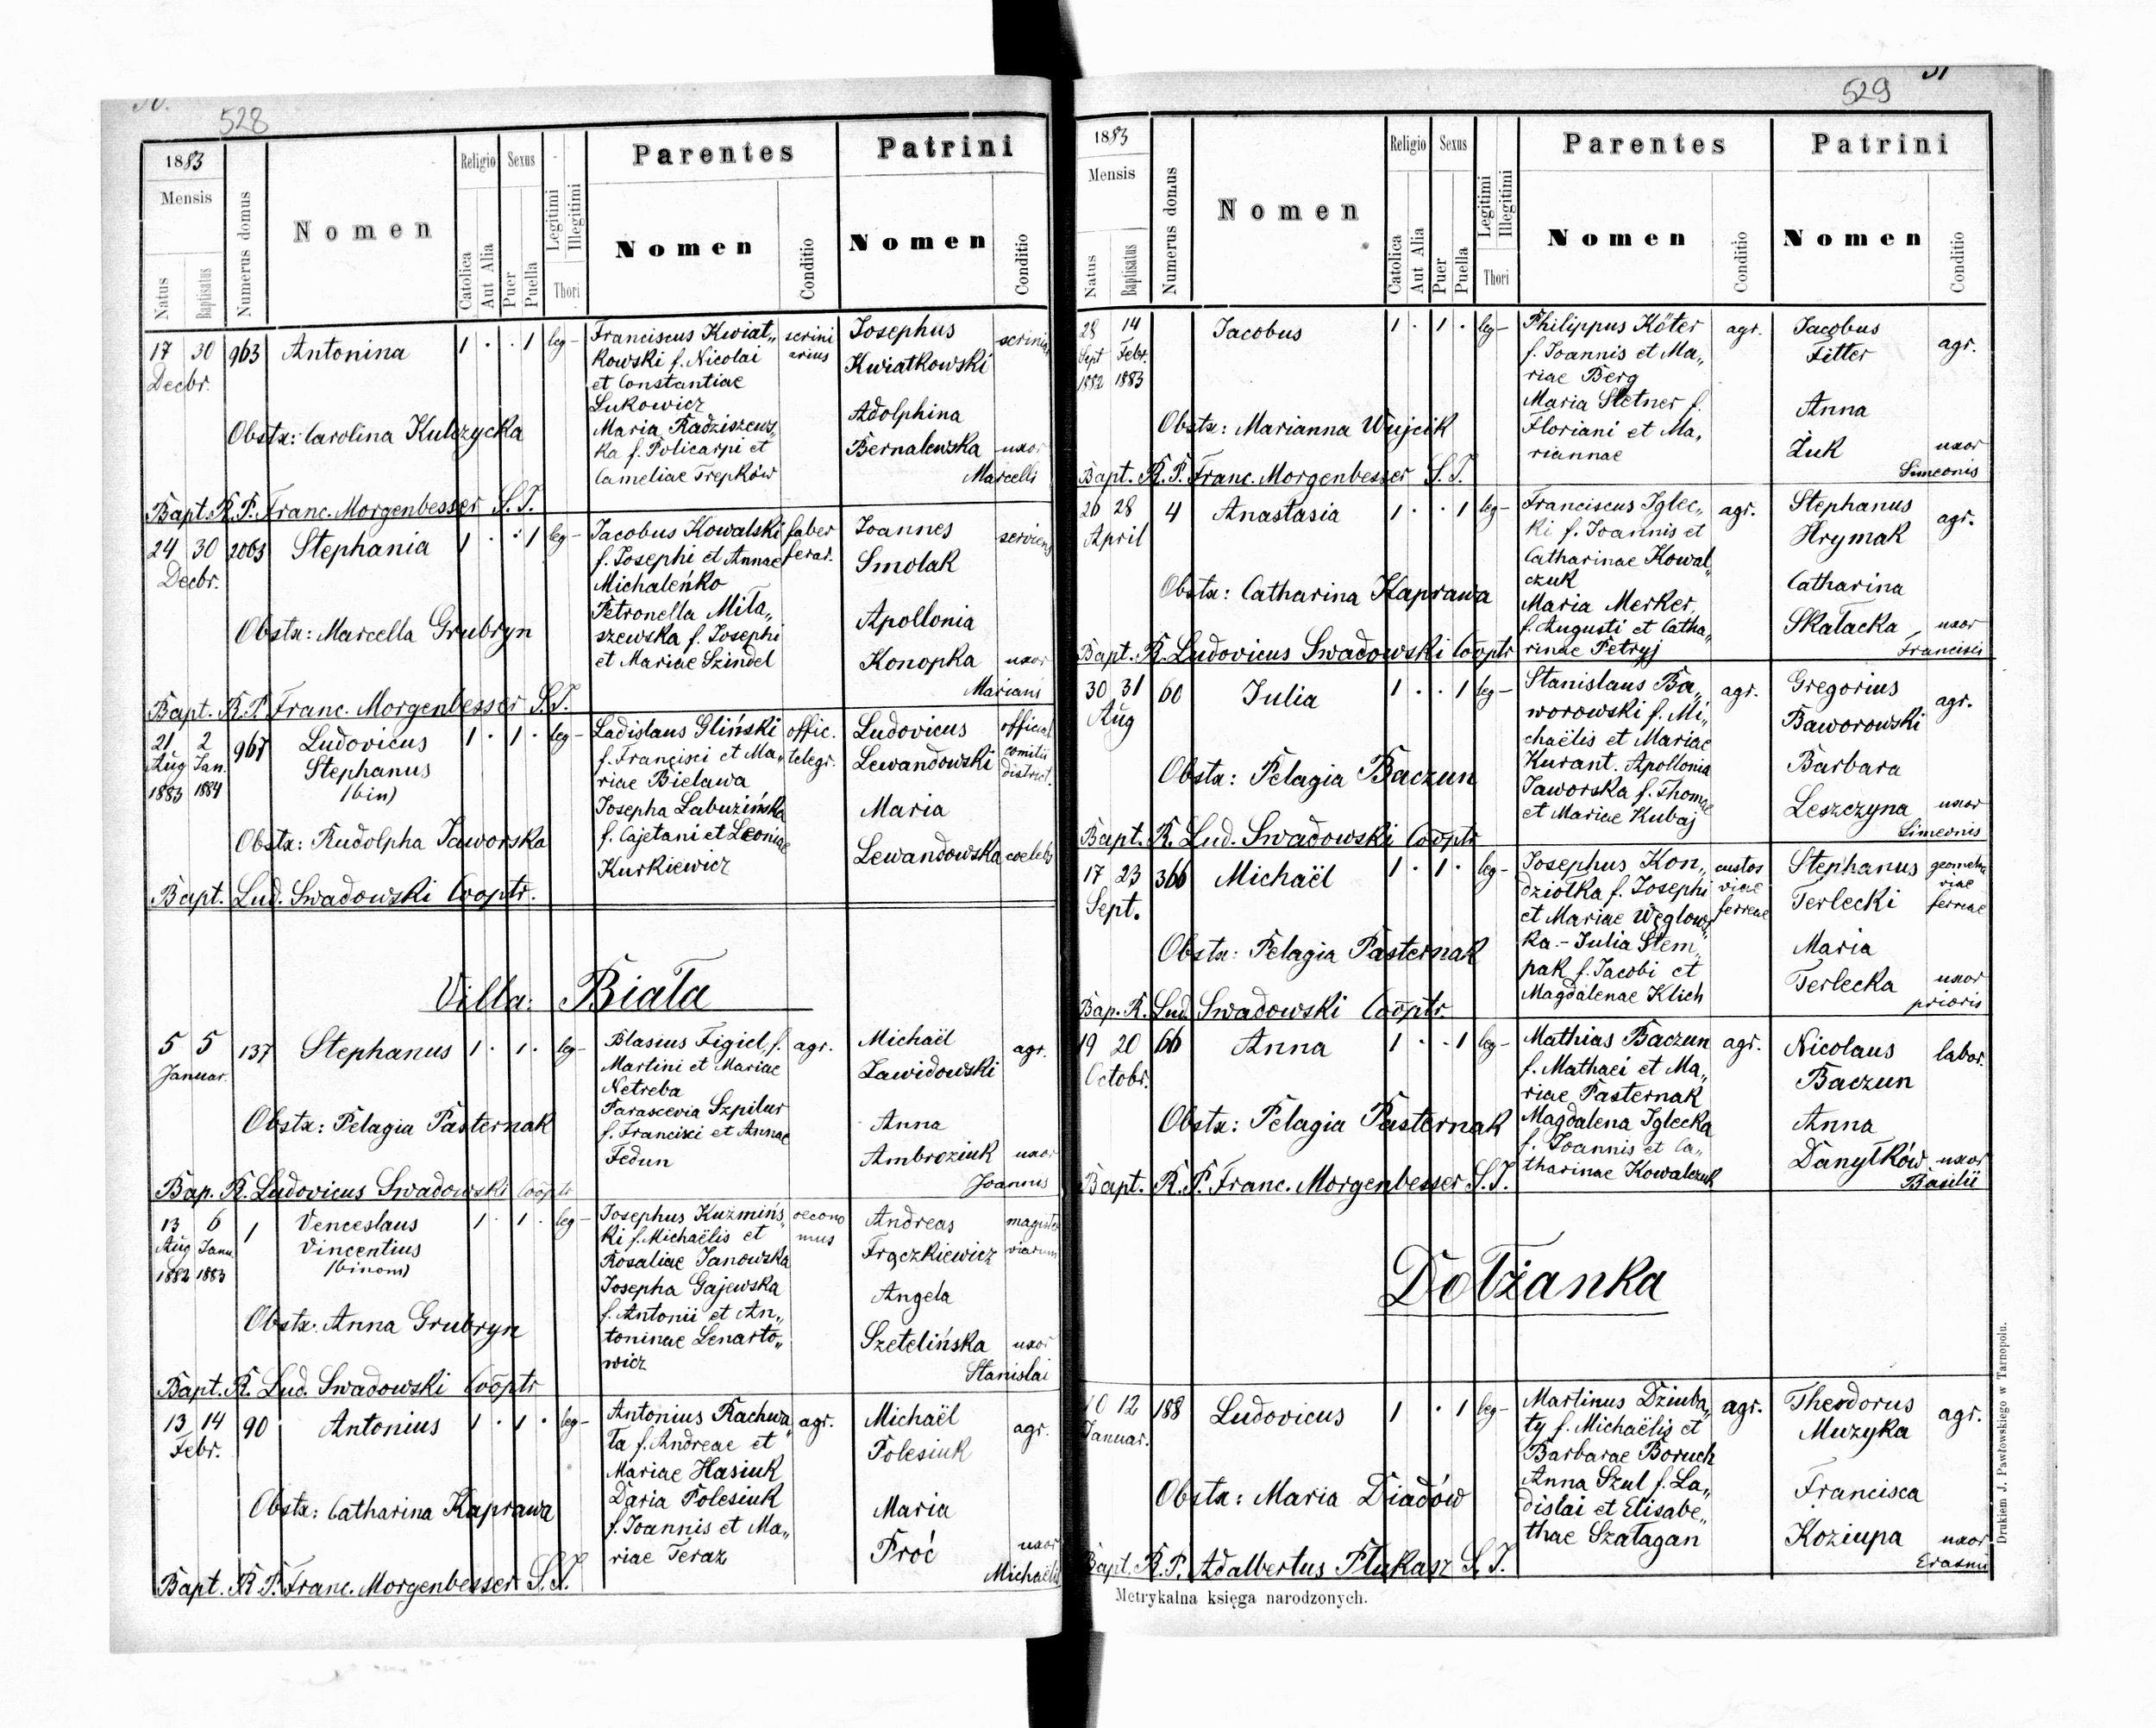 528
1883
Mensis
Natus
Baptisatus
Numerus domus
Nomen
Religio
Catolica
Aut Alia
Sexus
Puer
Puella
Legitimi
Illegitimi
Thori
Parentes
Nomen
Conditio
Patrini
Nomen
Conditio
17 30 963 Antonina 1 · · 1 leg-
Decbr.
Franciscus Kwiat„
kowski f. Nicolai
et Constantiae
Lukowicz
Maria Radziszews„
ka f. Policarpi et
Cameliae Trepków
scrini
arius
Josephus
Kwiatkowski
Adolphina
Bernalewska uxor
Marcelli
Obstx: Carolina Kulczycka
Bapt. R. P. Franc. Morgenbesser S. J.
24 30 2063 Stephania 1 · · 1 leg-
Decbr.
Jacobus Kowalski
f. Josephi et Annae
Michaleńko
Petronella Mila„
szewska f. Josephi
et Mariae Szindel
faber
ferar.
Joannes
Smolak
serviens
Apollonia
Konopka uxor
Mariani
Obstx: Marcella Grubryn
Bapt. R. P. Franc. Morgenbesser S. J.
21 2 967 Ludovicus 1 · 1 · leg-
Aug Jan. Stephanus
1883 1884 (bin)
Ladislaus Gliński
f. Francisci et Ma„
riae Bielawa
Josepha Labuzińska
f. Cajetani et Leoniae
Kurkiewicz
offic.
telegr.
Ludovicus
Lewandowski
official
comitii
district.
Maria
Lewandowska coelebs
Obstx: Rudolpha Jaworska
Bapt. Lud. Swadowski Cooptr.
Villa: Biała
5 5 137 Stephanus 1 · 1 · leg-
Januar.
Blasius Figiel f.
Martini et Mariae
Netreba
Parascevia Szpilur
f. Francisci et Annae
Fedun
agr.
Michaël
Zawidowski
agr.
Anna
Ambroziuk uxor
Joannis
Obstx: Pelagia Pasternak
Bap. R. Ludovicus Swadowski Cooptr
13 6 1 Venceslaus 1 · 1 · leg-
Aug Janu. Vincentius
1882 1883 (binom)
Josephus Kuzmińs„
ki f. Michaëlis et
Rosaliae Janowska
Josepha Gajewska
f. Antonii et An„
toninae Lenarto„
wicz
oecono
mus
Andreas
Frączkiewicz
magister
viarum
Angela
Szetelińska uxor
Stanislai
Obstx: Anna Grubryn
Bapt. R. Lud. Swadowski Cooptr
13 14 90 Antonius 1 · 1 · leg-
Febr.
Antonius Rachwa„
ła f. Andreae et
Mariae Hasiuk
Daria Polesiuk
f. Joannis et Ma„
riae Teraz
agr.
Michaël
Polesiuk
agr.
Maria
Proć uxor
Michaëlis
Obstx: Catharina Kaprawa
Bapt. R. P. Franc. Morgenbesser S. J.
529
1883
Mensis
Natus
Baptisatus
Numerus domus
Nomen
Religio
Catolica
Aut Alia
Sexus
Puer
Puella
Legitimi
Illegitimi
Thori
Parentes
Nomen
Conditio
Patrini
Nomen
Conditio
28 14 Jacobus 1 · 1 · leg-
Sept Febr.
1882 1883
Philippus Köter
f. Joannis et Ma„
riae Berg
Maria Stetner f.
Floriani et Ma„
riannae
agr.
Jacobus
Fitter
agr.
Anna
Żuk uxor
Simeonis
Obstx: Marianna Wujcik
Bapt. R. P. Franc. Morgenbesser S. J.
26 28 4 Anastasia 1 · · 1 leg-
April
Franciscus Iglec„
ki f. Joannis et
Catharinae Kowal„
czuk
Maria Merker,
f. Augusti et Catha„
rinae Petryj
agr.
Stephanus
Hrymak
agr.
Catharina
Skałacka uxor
Francisci
Obstx: Catharina Kaprawa
Bapt. R. Ludovicus Swadowski Cooptr
30 31 60 Julia 1 · · 1 leg-
Aug
Stanislaus Ba„
worowski f. Mi„
chaëlis et Mariae
Kurant. Apollonia
Jaworska f. Thomae
et Mariae Kubaj
agr.
Gregorius
Baworowski
agr.
Barbara
Leszczyna uxor
Simeonis
Obstx: Pelagia Baczun
Bapt. R. Lud. Swadowski Cooptr
17 23 366 Michaël 1 · 1 · leg-
Sept.
Josephus Kon„
dziołka f. Josephi
et Mariae Węglows„
ka - Julia Stem„
pak f. Jacobi et
Magdalenae Klich
custos
viae
ferreae
Stephanus
Terlecki
geometra
viae
ferreae
Maria
Terlecka uxor
prioris
Obstx: Pelagia Pasternak
Bap. R. Lud. Swadowski Cooptr.
19 20 66 Anna 1 · · 1 leg-
Octobr.
Mathias Baczun
f. Mathaei et Ma„
riae Pasternak
Magdalena Iglecka
f. Joannis et Ca„
tharinae Kowalczuk
agr.
Nicolaus
Baczun
labor.
Anna
Danyłków uxor
Basilii
Obstx: Pelagia Pasternak
Bapt. R. P. Franc. Morgenbesser S. J.
Dołżanka
10 12 188 Ludovicus 1 · 1 leg-
Januar.
Martinus Dziuba„
ty f. Michaëlis et
Barbarae Boruch
Anna Szul f. La„
dislai et Elisabe„
thae Szałagan
agr.
Theodorus
Muzyka
agr.
Francisca
Koziupa uxor
Erasmi
Obstx: Maria Diadów
Bapt. R. P. Adalbertus Flukasz S. J.
Metrykalna księga narodzonych.
Drukiem J. Pawłowskiego w Tarnopolu.